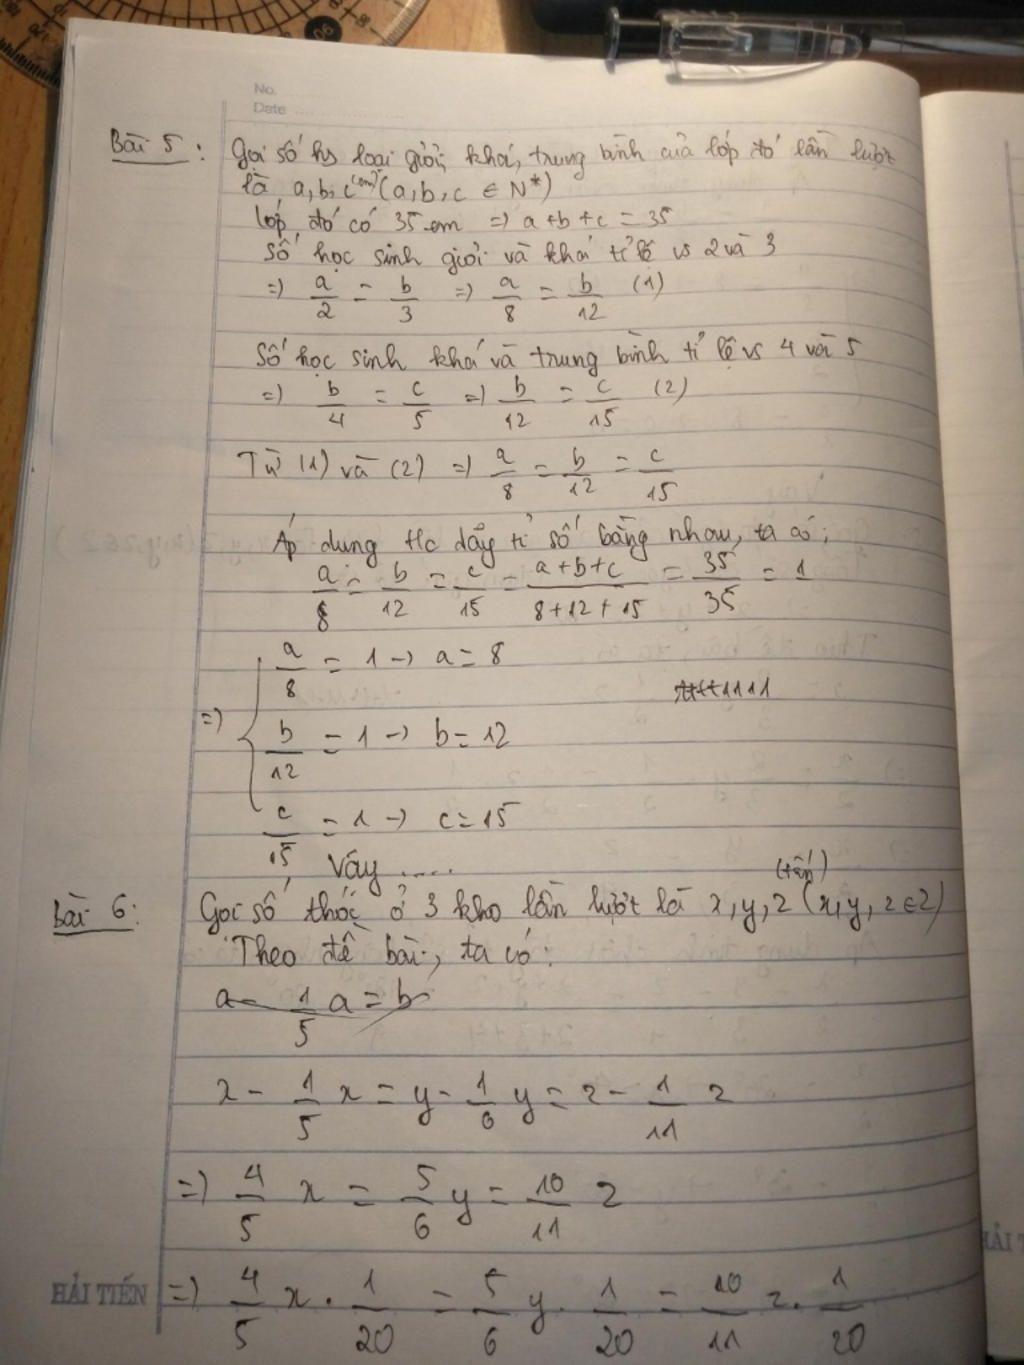 No.
Date
Bài 5: Gọi số hs loại giỏi, khá, trung bình của lớp đó lần lượt
là a, b, c (em) (a, b, c ∈ N*)
lớp đó có 35 em => a + b + c = 35
Số học sinh giỏi và khá tỉ lệ vs 2 và 3
=> a/2 = b/3 => a/8 = b/12 (1)
Số học sinh khá và trung bình tỉ lệ vs 4 với 5
=> b/4 = c/5 => b/12 = c/15 (2)
Từ (1) và (2) => a/8 = b/12 = c/15
Áp dụng t/c dãy tỉ số bằng nhau, ta có:
a/8 = b/12 = c/15 = a+b+c/8+12+15 = 35/35 = 1
a/8 = 1 -> a = 8
=> b/12 = 1 -> b = 12
c/15 = 1 -> c = 15
Vậy ....
Bài 6: Gọi số thóc ở 3 kho lần lượt là x, y, z (tấn) (x, y, z ∈ Z)
Theo đề bài, ta có:
a - 1/5 a = b
x - 1/5 x = y - 1/6 y = z - 1/11 z
=> 4/5 x = 5/6 y = 10/11 z
=> 4/5 x . 1/20 = 5/6 y . 1/20 = 10/11 z . 1/20
HẢI TIẾN